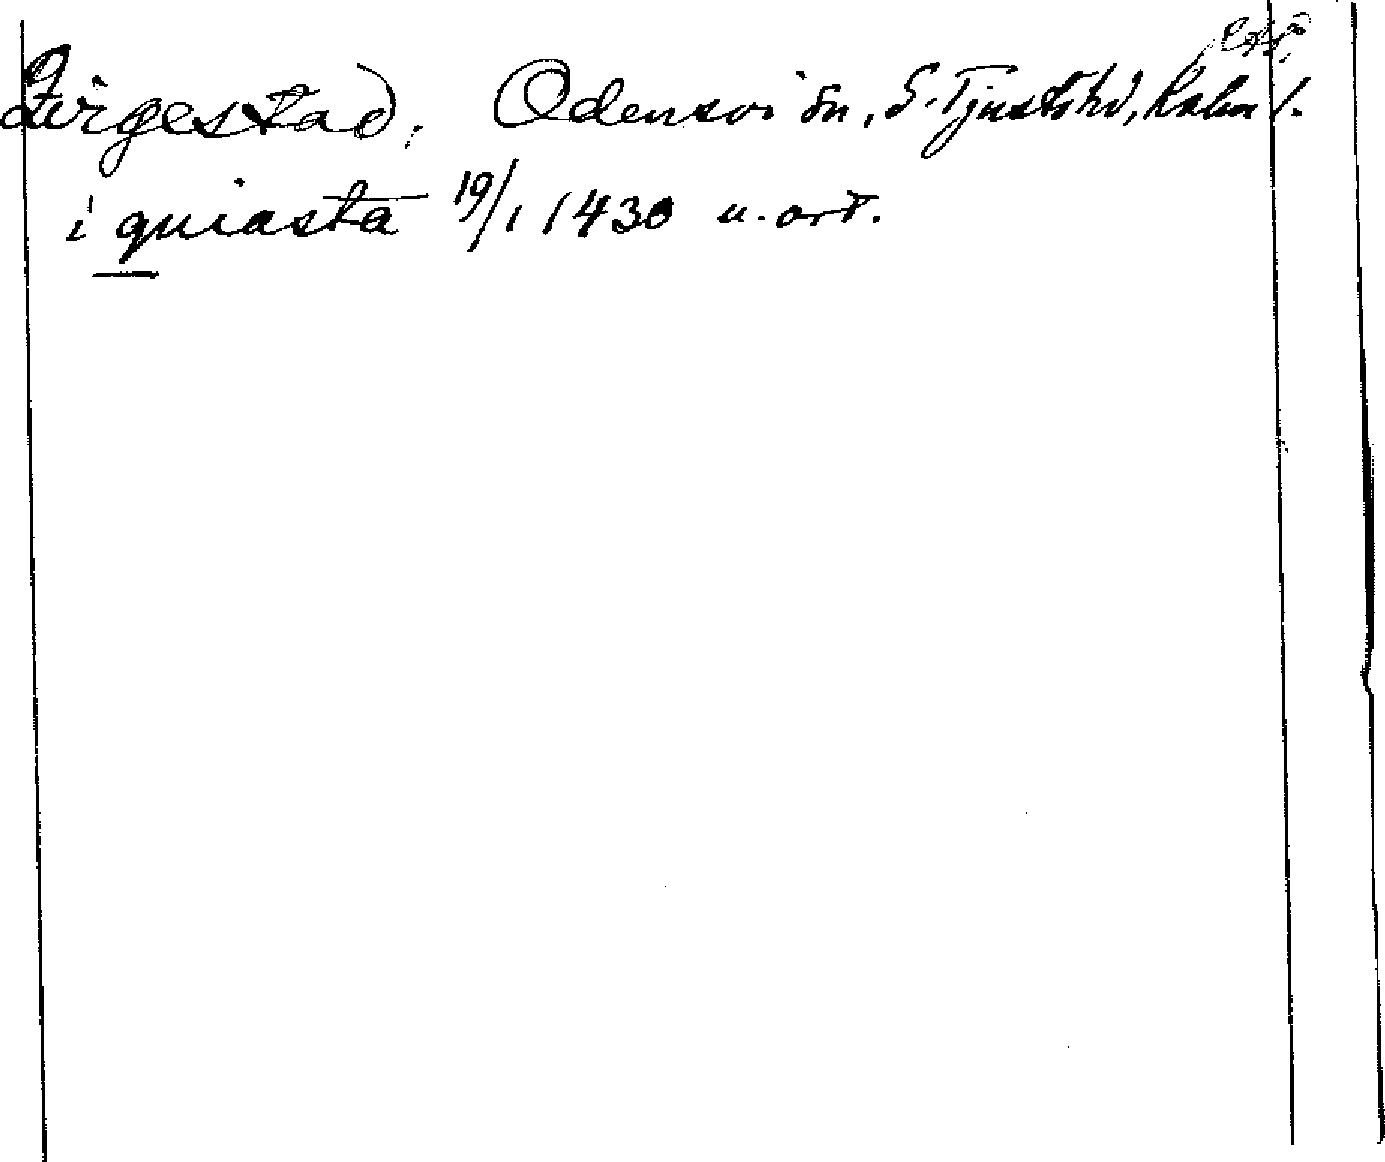 Qvigestad, Odensvi sn, S. Tjusts hd, Kalm l.
i quiasta 19/1 1430 u. ort.